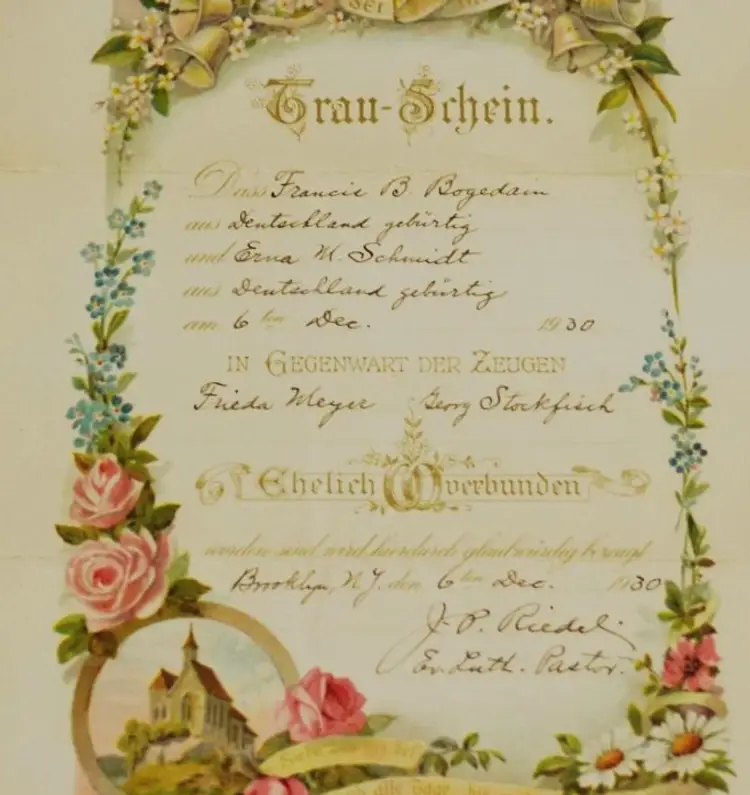 der
Trau-Schein.
Dass Francis B. Bogedain
aus Deutschland gebürtig
und Erna M. Schmidt
aus Deutschland gebürtig
am 6 ten Dec. 1930
IN GEGENWART DER ZEUGEN
Frieda Meyer Georg Stockfisch
Ehelich verbunden
worden sind wird hierdurch glaubwürdig bezeugt
Brooklyn, N.Y. den 6 ten Dec. 1930
J. P. Riedel
Ev. Luth. Pastor.